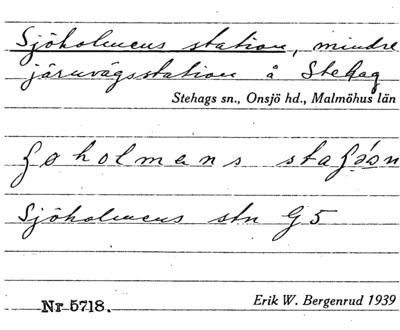 Sjöholmens station, mindre
järnvägsstation å Stehag
Stehags sn., Onsjö hd., Malmöhus län
holmens
Sjöholmens stn G5
Nr 5718. Erik W. Bergenrud 1939